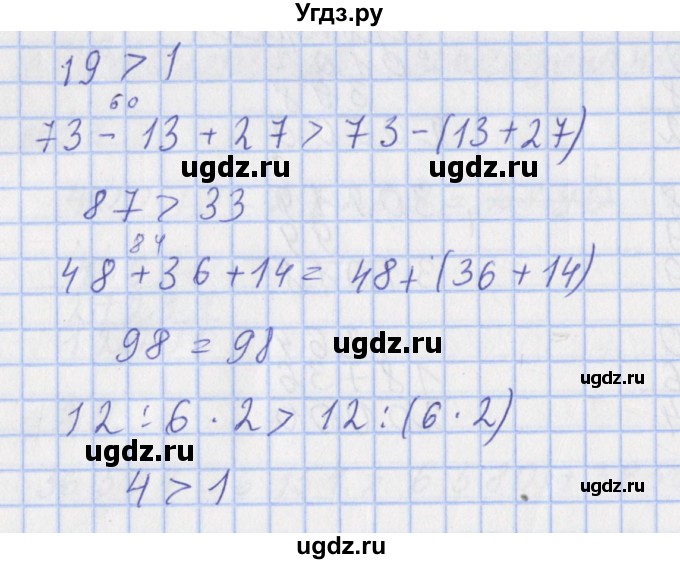 Угдз.ру
19 > 1
60
73 - 13 + 27 > 73 - (13 + 27)
ugdz.ru ugdz.ru
87 > 33
84
48 + 36 + 14 = 48 + (36 + 14)
98 = 98 ugdz.ru
ugdz.ru
12 : 6 · 2 > 12 : (6 · 2)
ugdz.ru
4 > 1 ugdz.ru
ugdz.ru